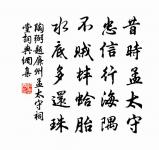 昔時孟太守
忠信行海隅
不賊蚌蛤胎
水底多還珠
陶弼題廉州孟太守祠
堂詞典網集